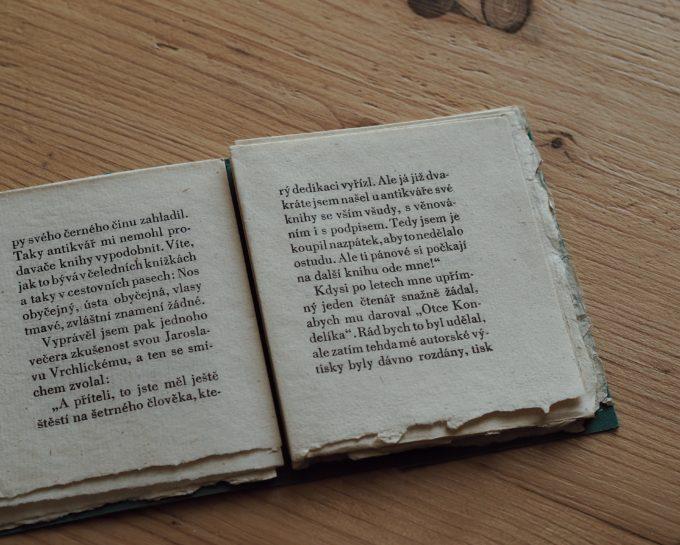 py svého černého činu zahladil.
Taky antikvář mi nemohl pro-
davače knihy vypodobnit. Víte,
jak to bývá v čeledních knížkách
a taky v cestovních pasech: Nos
obyčejný, ústa obyčejná, vlasy
tmavé, zvláštní znamení žádné.
Vyprávěl jsem pak jednoho
večera zkušenost svou Jarosla-
vu Vrchlickému, a ten se smí-
chem zvolal:
„A příteli, to jste měl ještě
štěstí na šetrného člověka, kte-
rý dedikaci vyřízl. Ale já již dva-
kráte jsem našel u antikváře své
knihy se vším všudy, s věnová-
ním i s podpisem. Tedy jsem je
koupil nazpátek, aby to nedělalo
ostudu. Ale ti pánové si počkají
na další knihu ode mne!“
Kdysi po letech mne upřím-
ný jeden čtenář snažně žádal,
abych mu daroval „Otce Kon-
delíka“. Rád bych to byl udělal,
ale zatím tehda mé autorské vý-
tisky byly dávno rozdány, tisk